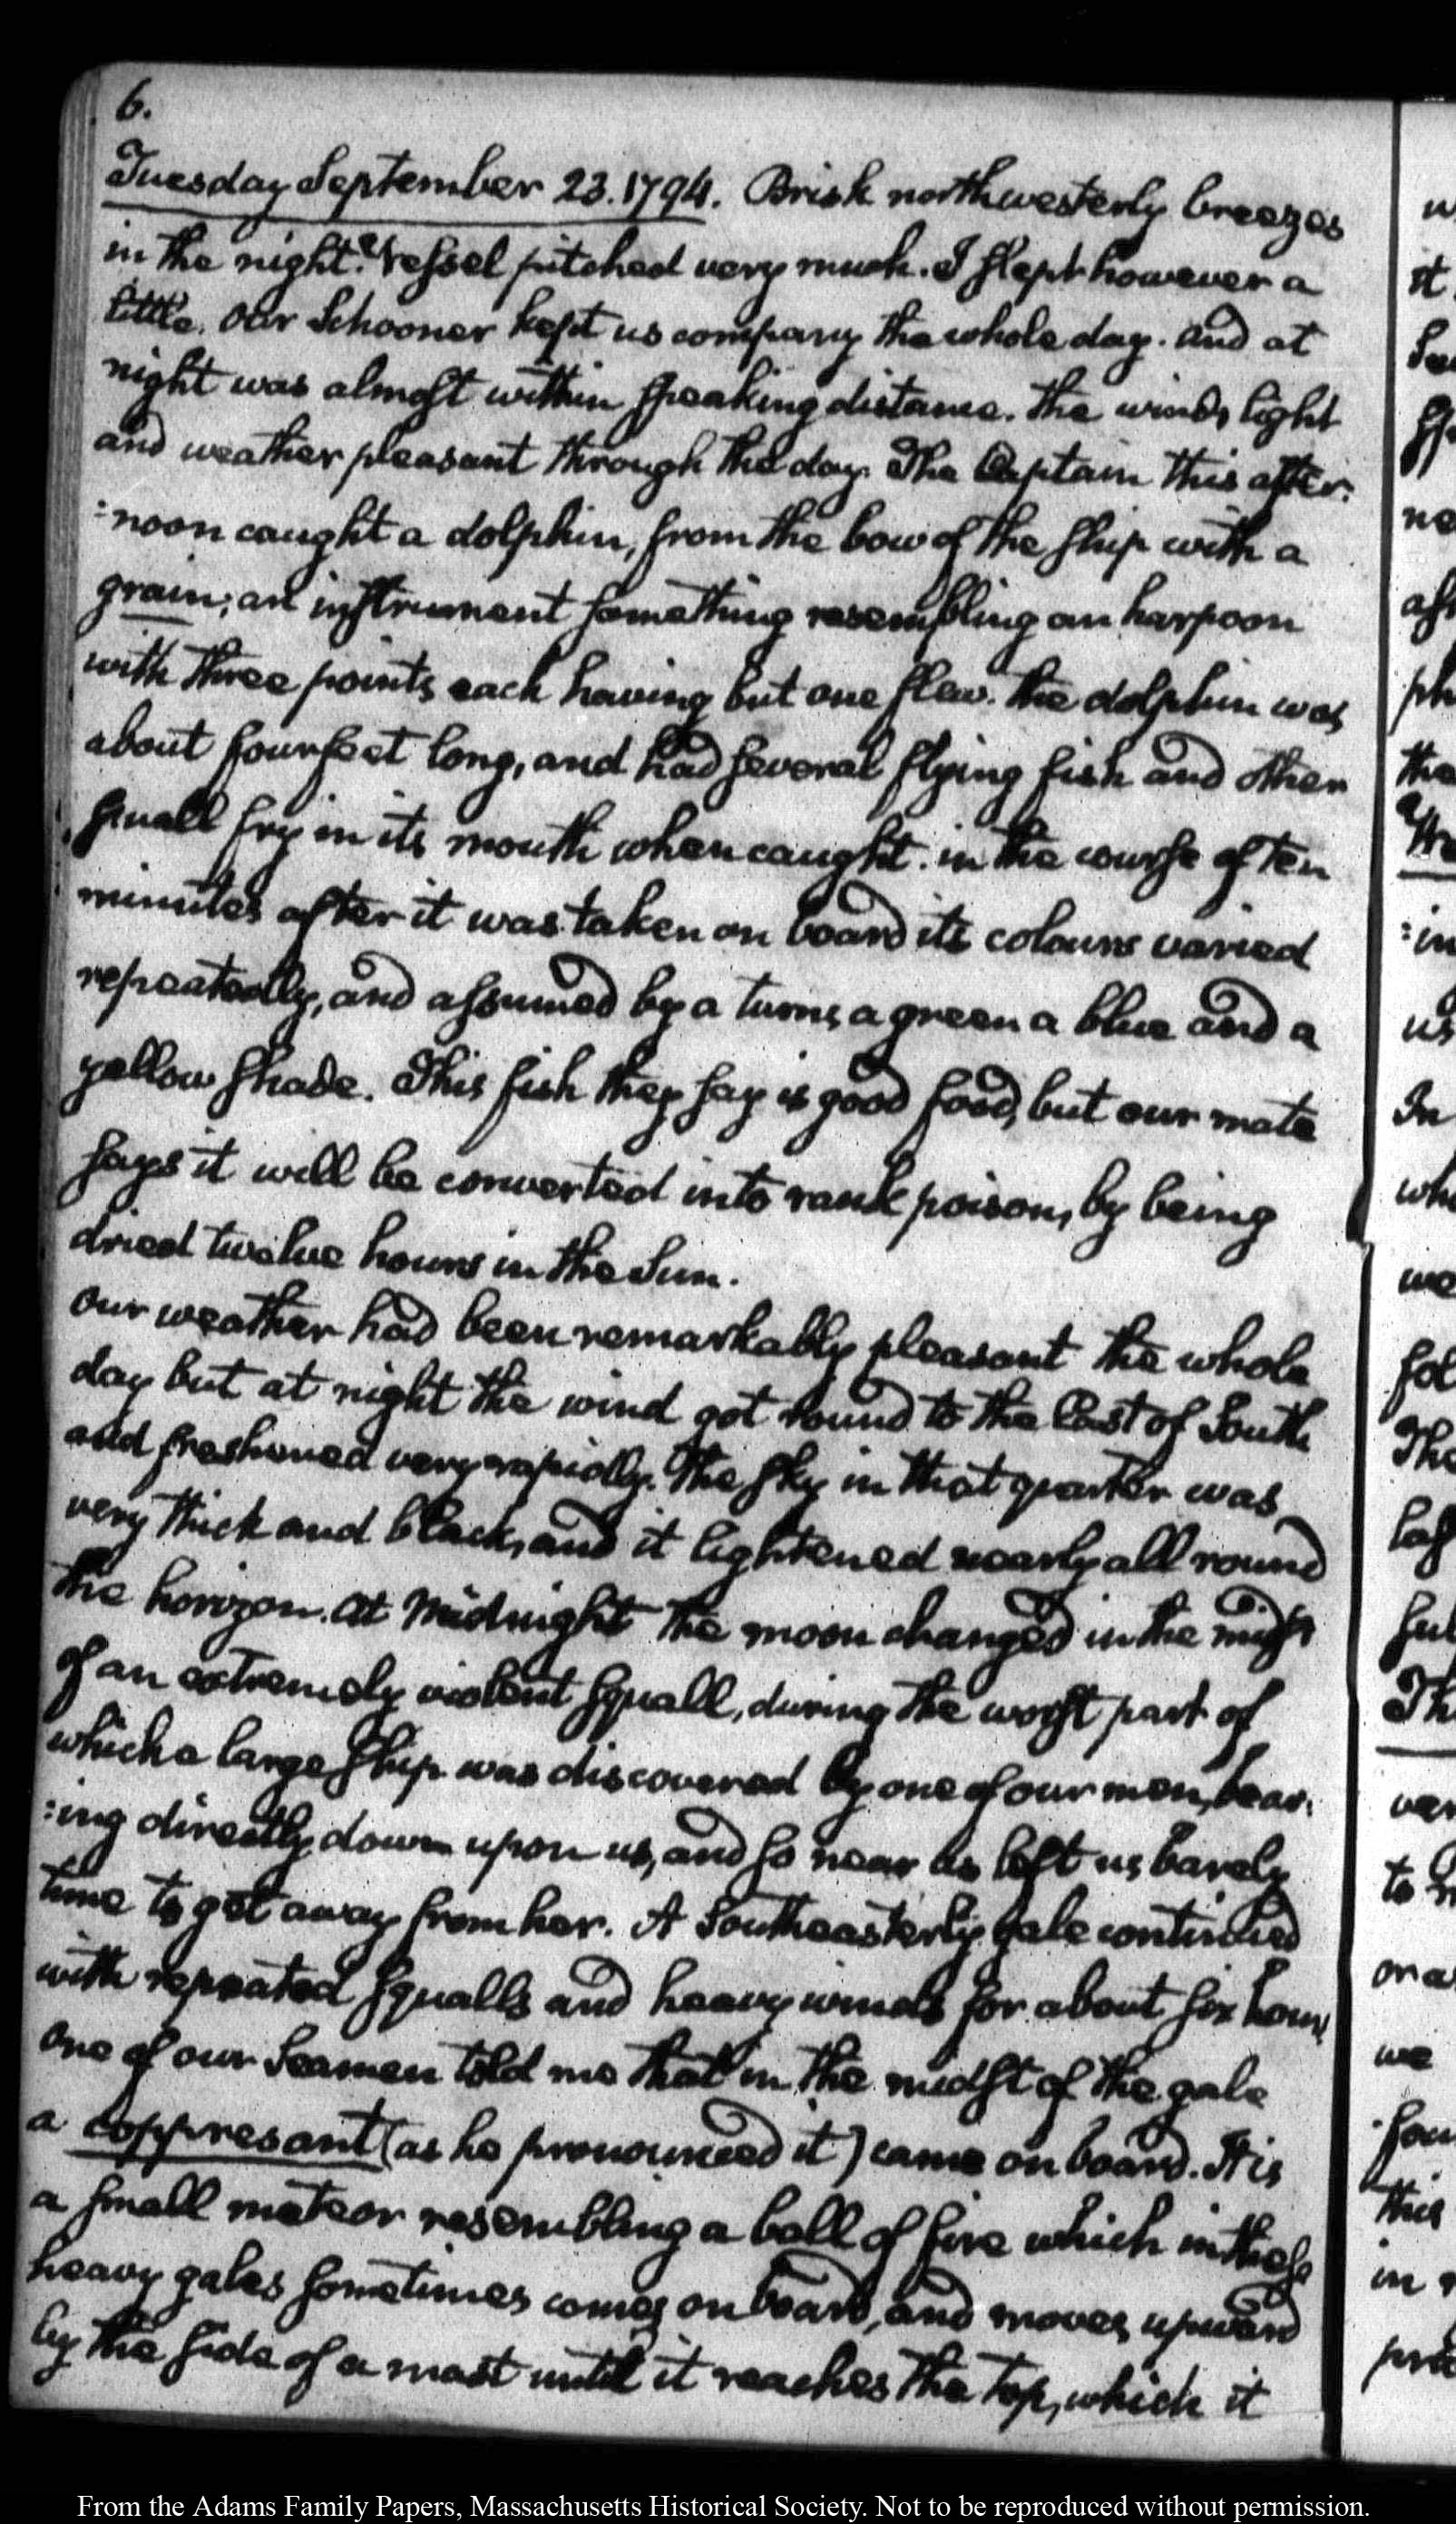 6.
Tuesday September 23. 1794. Brisk northwesterly breezes
in the night. Vessel pitched very much. I slept however a
little. Our Schooner kept us company the whole day. and at
night was almost within speaking distance. the winds light
and weather pleasant through the day. The Captain this after:
:noon caught a dolphin, from the bow of the ship with a
grain; an instrument something resembling an harpoon
with three points each having but one flew. the dolphin was
about four feet long, and had several flying fish and other
small fry in its mouth when caught. in the course of ten
minutes after it was taken on board its colours varied
repeatedly, and assumed by a turns a green a blue and a
yellow shade. This fish they say is good food, but our mate
says it will be converted into rank poison, by being
dried twelve hours in the Sun.
Our weather had been remarkably pleasant the whole
day but at night the wind got round to the East of South
and freshened very rapidly. The sky in that quarter was
very thick and black, and it lightened nearly all round
the horizon. At Midnight the moon changed in the midst
of an extremely violent squall, during the worst part of
which a large ship was discovered by one of our men, bear:
:ing directly down upon us, and so near as left us barely
time to get away from her. A Southeasterly gale continued
with repeated squalls and heavy winds for about six hours
One of our Seamen told me that in the midst of the gale
a coppresant (as he pronounced it) came on board. It is
a small meteor resembling a ball of fire which in these
heavy gales sometimes comes on board, and moves upward
by the side of a mast until it reaches the top, which it
From the Adams Family Papers, Massachusetts Historical Society. Not to be reproduced without permission.